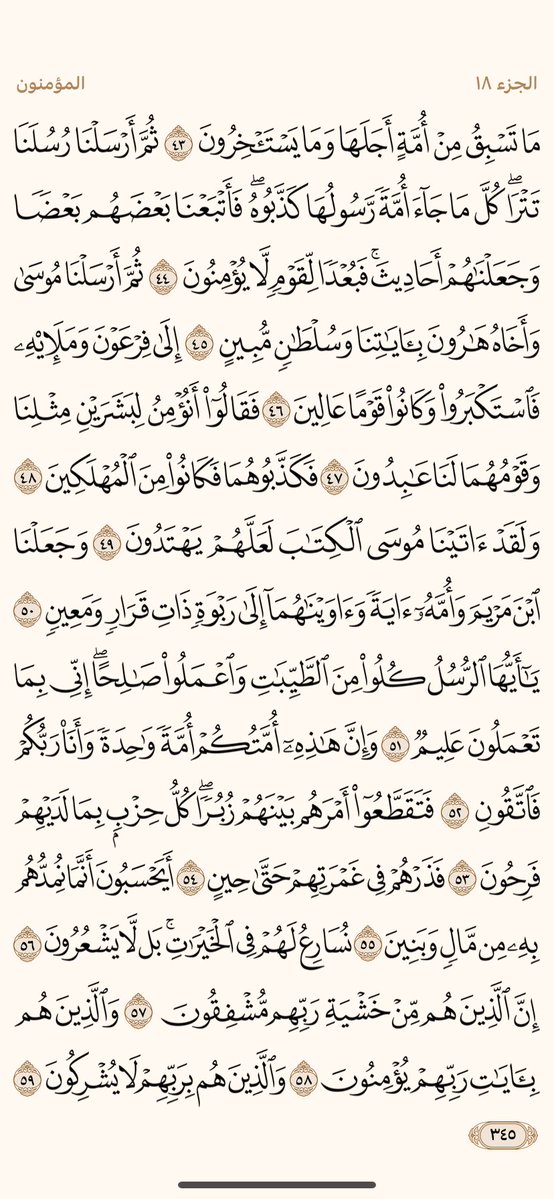 الجزء ١٨
المؤمنون
مَا تَسْبِقُ مِنْ أُمَّةٍ أَجَلَهَا وَمَا يَسْتَـْٔخِرُونَ ٤٣ ثُمَّ أَرْسَلْنَا رُسُلَنَا
تَتْرَاۖ كُلَّ مَا جَآءَ أُمَّةً رَّسُولُهَا كَذَّبُوهُۖ فَأَتْبَعْنَا بَعْضَهُم بَعْضًا
وَجَعَلْنَٰهُمْ أَحَادِيثَۚ فَبُعْدًا لِّقَوْمٍ لَّا يُؤْمِنُونَ ٤٤ ثُمَّ أَرْسَلْنَا مُوسَىٰ
وَأَخَاهُ هَٰرُونَ بِـَٔايَٰتِنَا وَسُلْطَٰنٍ مُّبِينٍ ٤٥ إِلَىٰ فِرْعَوْنَ وَمَلَإِيْهِۦ
فَٱسْتَكْبَرُوا۟ وَكَانُوا۟ قَوْمًا عَالِينَ ٤٦ فَقَالُوٓا۟ أَنُؤْمِنُ لِبَشَرَيْنِ مِثْلِنَا
وَقَوْمُهُمَا لَنَا عَٰبِدُونَ ٤٧ فَكَذَّبُوهُمَا فَكَانُوا۟ مِنَ ٱلْمُهْلَكِينَ ٤٨
وَلَقَدْ ءَاتَيْنَا مُوسَى ٱلْكِتَٰبَ لَعَلَّهُمْ يَهْتَدُونَ ٤٩ وَجَعَلْنَا
ٱبْنَ مَرْيَمَ وَأُمَّهُۥٓ ءَايَةً وَءَاوَيْنَٰهُمَآ إِلَىٰ رَبْوَةٍ ذَاتِ قَرَارٍ وَمَعِينٍ ٥٠
يَٰٓأَيُّهَا ٱلرُّسُلُ كُلُوا۟ مِنَ ٱلطَّيِّبَٰتِ وَٱعْمَلُوا۟ صَٰلِحًاۖ إِنِّى بِمَا
تَعْمَلُونَ عَلِيمٌ ٥١ وَإِنَّ هَٰذِهِۦٓ أُمَّتُكُمْ أُمَّةً وَٰحِدَةً وَأَنَا۠ رَبُّكُمْ
فَٱتَّقُونِ ٥٢ فَتَقَطَّعُوٓا۟ أَمْرَهُم بَيْنَهُمْ زُبُرًاۖ كُلُّ حِزْبٍۭ بِمَا لَدَيْهِمْ
فَرِحُونَ ٥٣ فَذَرْهُمْ فِى غَمْرَتِهِمْ حَتَّىٰ حِينٍ ٥٤ أَيَحْسَبُونَ أَنَّمَا نُمِدُّهُم
بِهِۦ مِن مَّالٍ وَبَنِينَ ٥٥ نُسَارِعُ لَهُمْ فِى ٱلْخَيْرَٰتِۚ بَل لَّا يَشْعُرُونَ ٥٦
إِنَّ ٱلَّذِينَ هُم مِّنْ خَشْيَةِ رَبِّهِم مُّشْفِقُونَ ٥٧ وَٱلَّذِينَ هُم
بِـَٔايَٰتِ رَبِّهِمْ يُؤْمِنُونَ ٥٨ وَٱلَّذِينَ هُم بِرَبِّهِمْ لَا يُشْرِكُونَ ٥٩
٣٤٥